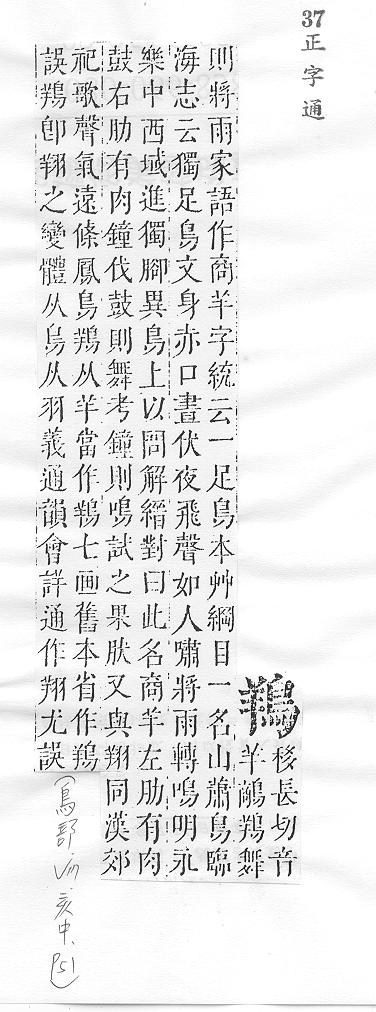 37正字通
䍺
移長切音
羊䴃䍺舞
則將雨家語作商羊字統云一足鳥本艸綱目一名山蕭鳥臨
海志云獨足鳥文身赤口晝伏夜飛聲如人嘯將雨轉鳴明永
樂中西域進獨腳異鳥上以問解縉對曰此名商羊左肋有肉
鼓右肋有肉鐘伐鼓則舞考鐘則鳴試之果肰又與翔同漢郊
祀歌聲氣遠條鳳鳥䍺从羊當作䍺七画舊本省作䍺
誤䍺卽翔之變體从鳥从羽義通韻會詳通作翔尤誤
(鳥部 亥中、P51)